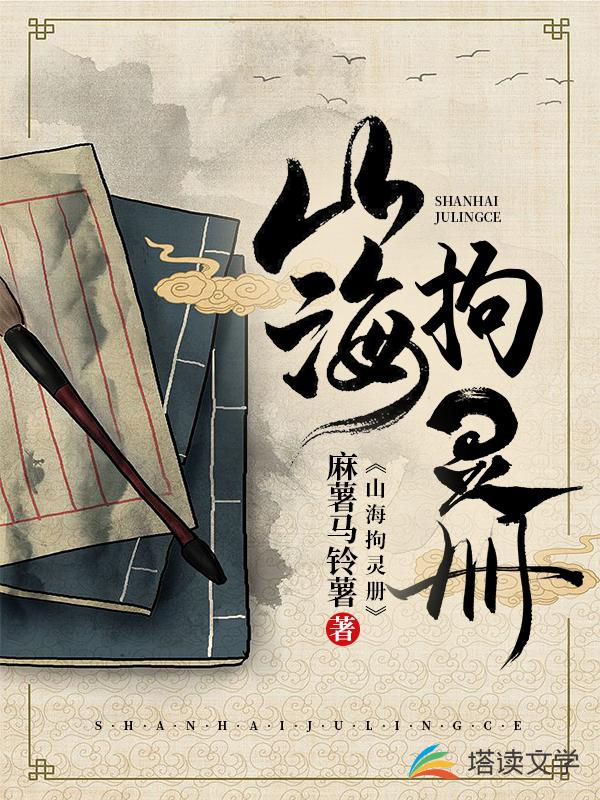 山海
拘灵册
SHANHAI
JULINGCE
《山海拘灵册》
麻薯马铃薯 著
S·H·A·N·H·A·I·J·U·L·I·N·G·C·E
塔读文学